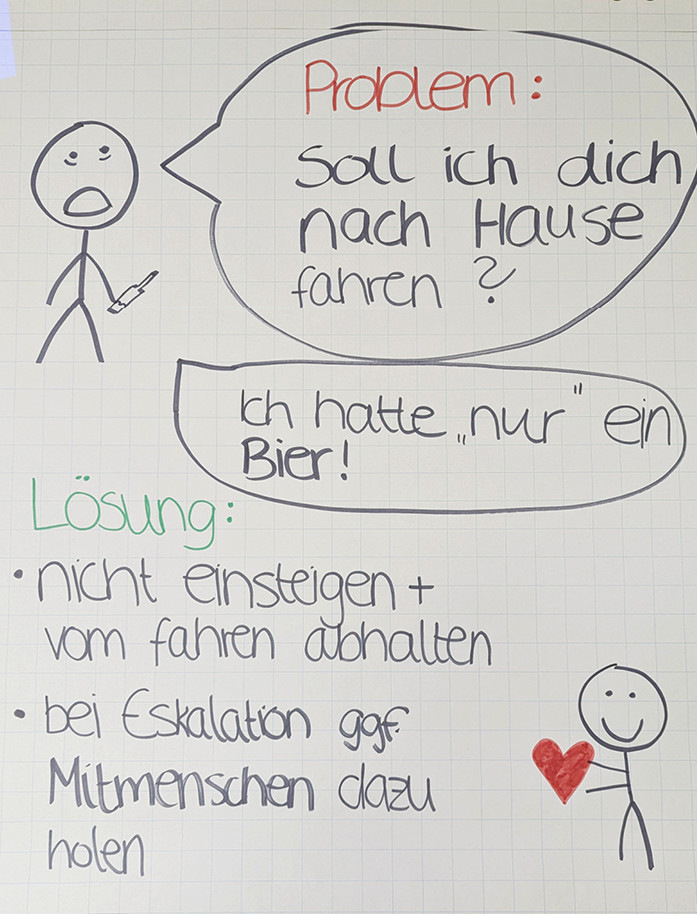 Problem:
Soll ich dich
nach Hause
fahren?
Ich hatte „nur" ein
Bier!
Lösung:
• nicht einsteigen +
vom fahren abhalten
• bei Eskalation ggf.
Mitmenschen dazu
holen